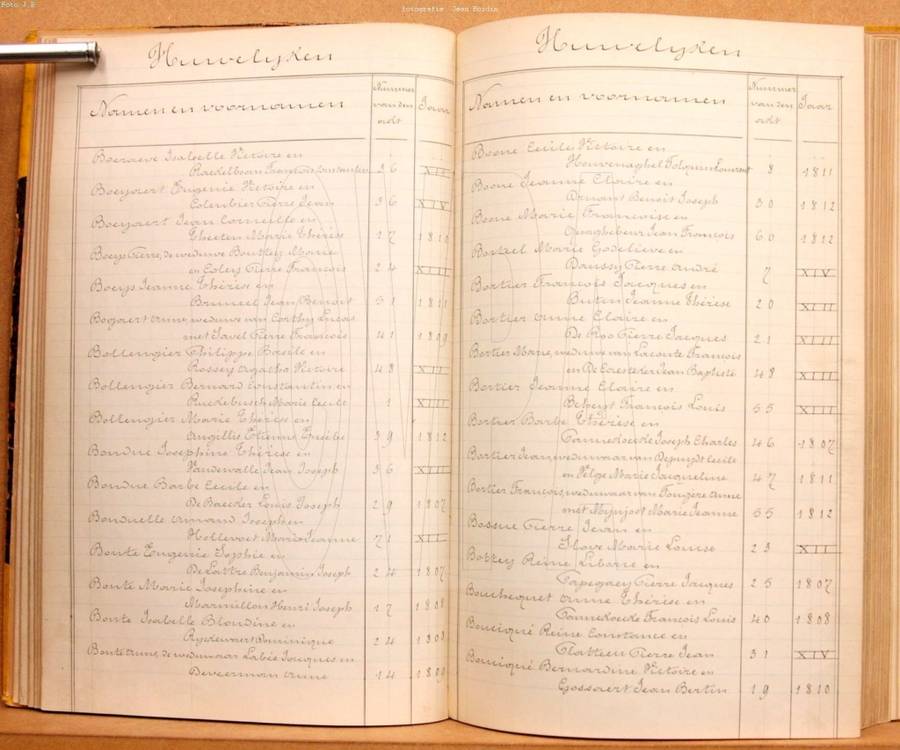 Foto J.B
fotografie: Jean Bordin
Huwelyken
Namen en voornamen
Nummer van den acht
Jaar
Boeraeve Isabelle Victoire en
Raedelboom François Constantin 36 XII
Boeyaert Eugenie Victoire en
Colenbier Pierre Jean 36 XIV
Boeyaert Jean Corneille en
Theeten Marie Thérèse 17 1810
Boeys Pierre, de weduwe Bouttey Marie
en Coleys Pierre François 24 XIII
Boeys Jeanne Thérèse en
Bruneel Jean Benoit 51 1811
Bogaert Anne, weduwe van Corthy Lucois
met Javel Pierre François 41 1809
Bollengier Philippe Basile en
Rossey Agatha Victoire 48 XII
Bollengier Bernard Constantin en
Ruedebusch Marie Cecile 1 XIII
Bollengier Marie Thérèse en
Angillis Etienne Eusèbe 39 1812
Bondue Josephine Thérèse en
Vandewalle Jean Joseph 36 XIII
Bondue Barbe Cecile en
De Baecker Louis Joseph 29 1807
Bonduelle Armand Joseph en
Hollevoet Marie Jeanne 71 XII
Bonte Eugenie Sophie en
De Lattre Benjamin Joseph 24 1807
Bonte Marie Josephine en
Marmillon Henri Joseph 17 1808
Bonte Isabelle Blondine en
Ryckewaert Dominique 24 1808
Bonte Anne, de weduwaar Labée Jacques en
Deveerman Anne 14 1809
Huwelyken
Namen en voornamen
Nummer van den acht
Jaar
Boone Cecile Victoire en
Houvenaghel Folquin Laurent 8 1811
Boone Jeanne Claire en
Benoit Joseph 30 1812
Boone Marie Françoise en
Quaghebeur Jean François 60 1812
Marie Godelieve en
Daussy Pierre André 7 XIV
Bortier François Jacques en
Butin Jeanne Thérèse 20 XIII
Bortier Anne Claire en
De Roo Pierre Jacques 21 XIII
Bortier Marie, weduwe van Laconte François
en De Jean Baptiste 48 XIII
Bortier Jeanne Claire en
Beheyt François Louis 55 XIII
Bortier Barbe Thérèse en
Pannekoecke Joseph Charles 46 1807
Bortier Jean, weduwaar van Depuydt Cecile
en Velge Marie Jacqueline 47 1811
Bortier François, weduwaar van Fougère Anne
met Mynjoot Marie Jeanne 55 1812
Bossue Pierre Jean en
Slove Marie Louise 23 XII
Bottey Reine Liborre en
Capegaey Pierre Jacques 25 1807
Bouchequet Anne Thérèse en
Pannekoecke François Louis 40 1808
Bouciqué Reine Constance en
Clatteeu Pierre Jean 31 XIV
Bouciqué Bernardine Victoire en
Gossaert Jean Bertin 19 1810